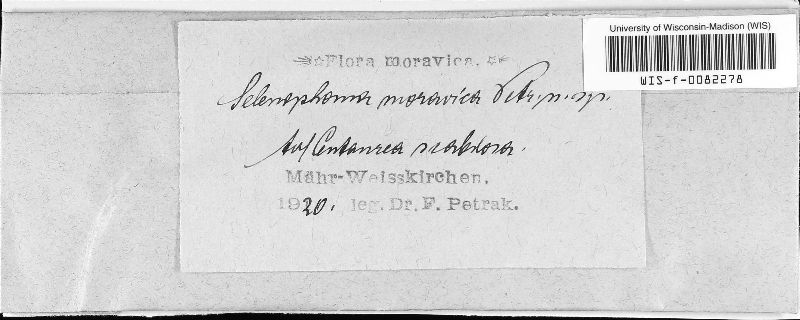 University of Wisconsin-Madison (WIS)
WIS-f-0082278
Flora moravica.
Selenophoma moravica Petr. n. sp.
Auf Centaurea scabiosa.
Mähr-Weisskirchen.
1920. leg. Dr. F. Petrak.